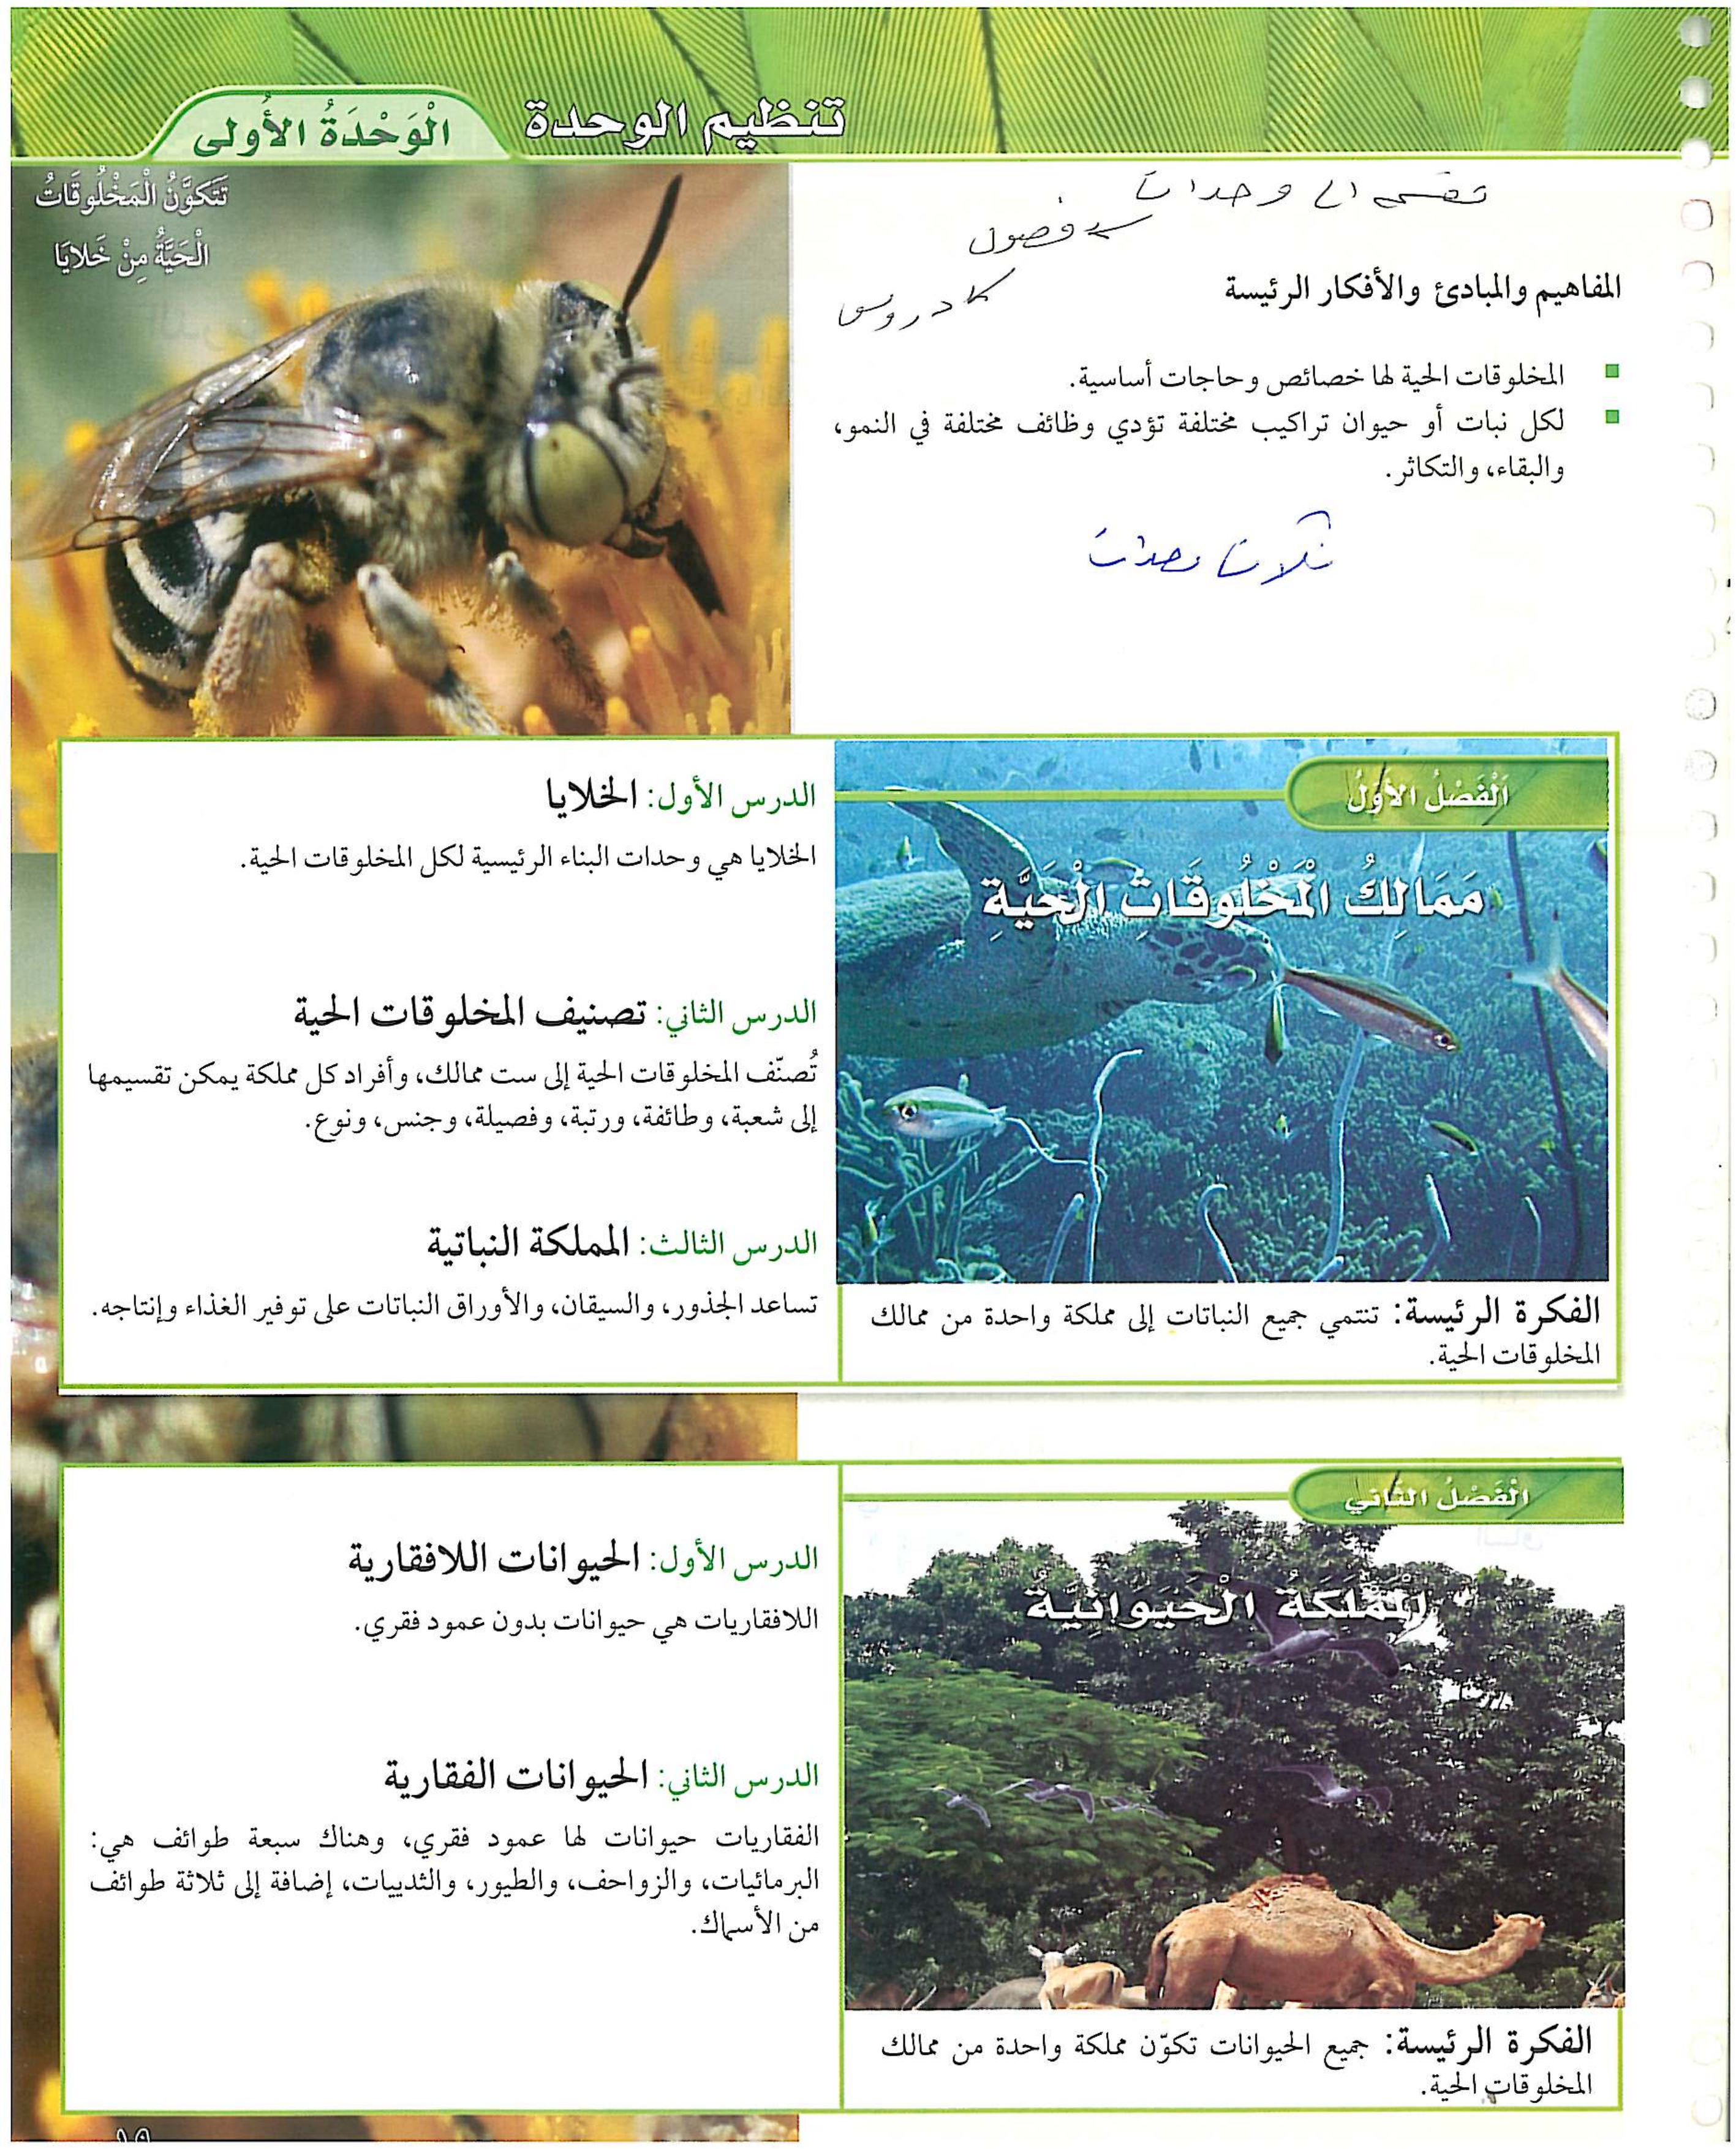 تنظيم الوحدة
الْوَحْدَةُ الأُولى
تَتَكَوَّنُ الْمَخْلُوقَاتُ
الْحَيَّةُ مِنْ خَلايَا
تقسم الى وحدات
فصول
دروس
المفاهيم والمبادئ والأفكار الرئيسة
المخلوقات الحية لها خصائص وحاجات أساسية.
لكل نبات أو حيوان تراكيب مختلفة تؤدي وظائف مختلفة في النمو،
والبقاء، والتكاثر.
ثلاث
اَلْفَصْلُ الأَوَّلُ
مَمَالِكُ الْمَخْلُوقَاتِ الْحَيَّةِ
الفكرة الرئيسة: تنتمي جميع النباتات إلى مملكة واحدة من ممالك
المخلوقات الحية.
الدرس الأول: الخلايا
الخلايا هي وحدات البناء الرئيسية لكل المخلوقات الحية.
الدرس الثاني: تصنيف المخلوقات الحية
تُصنّف المخلوقات الحية إلى ست ممالك، وأفراد كل مملكة يمكن تقسيمها
إلى شعبة، وطائفة، ورتبة، وفصيلة، وجنس، ونوع.
الدرس الثالث: المملكة النباتية
تساعد الجذور، والسيقان، والأوراق النباتات على توفير الغذاء وإنتاجه.
الْفَصْلُ الثَّاني
الْمَمْلَكَةُ الْحَيَوَانِيَّةُ
الفكرة الرئيسة: جميع الحيوانات تكوّن مملكة واحدة من ممالك
المخلوقات الحية.
الدرس الأول: الحيوانات اللافقارية
اللافقاريات هي حيوانات بدون عمود فقري.
الدرس الثاني: الحيوانات الفقارية
الفقاريات حيوانات لها عمود فقري، وهناك سبعة طوائف هي:
البرمائيات، والزواحف، والطيور، والثدييات، إضافة إلى ثلاثة طوائف
من الأسماك.
١٩